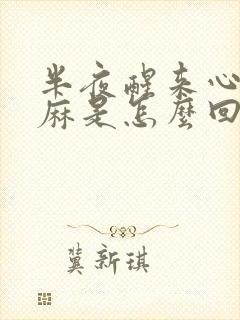 半夜醒来心
麻是怎麼回
冀新琪